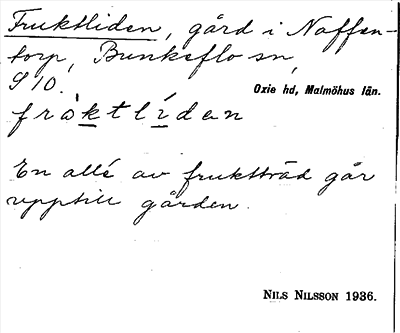 Fruktliden, gård i Naffen-
torp, Bunkeflo sn,
S 10. Oxie hd, Malmöhus län.
fròktlíden
En allé av fruktträd går
upptill gården.
NILS NILSSON 1936.